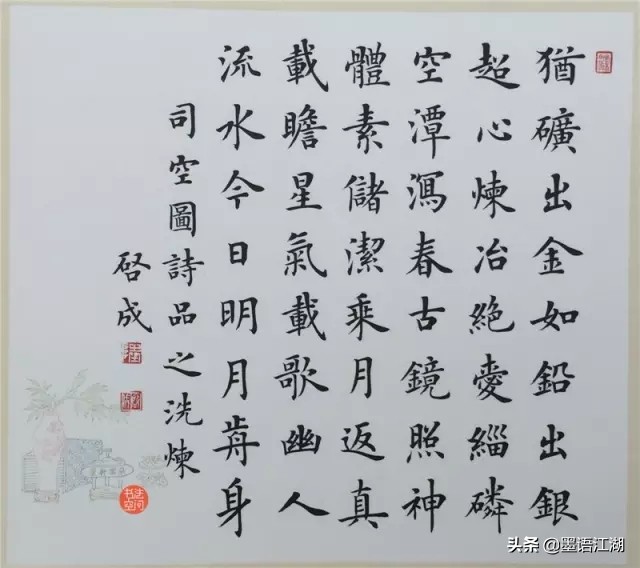 猶礦出金如鉛出銀
超心煉冶絕愛緇磷
空潭瀉春古鏡照神
體素儲潔乘月返真
載瞻星氣載歌幽人
流水今日明月歬身
司空圖詩品之洗煉
啓成
头条 @墨语江湖